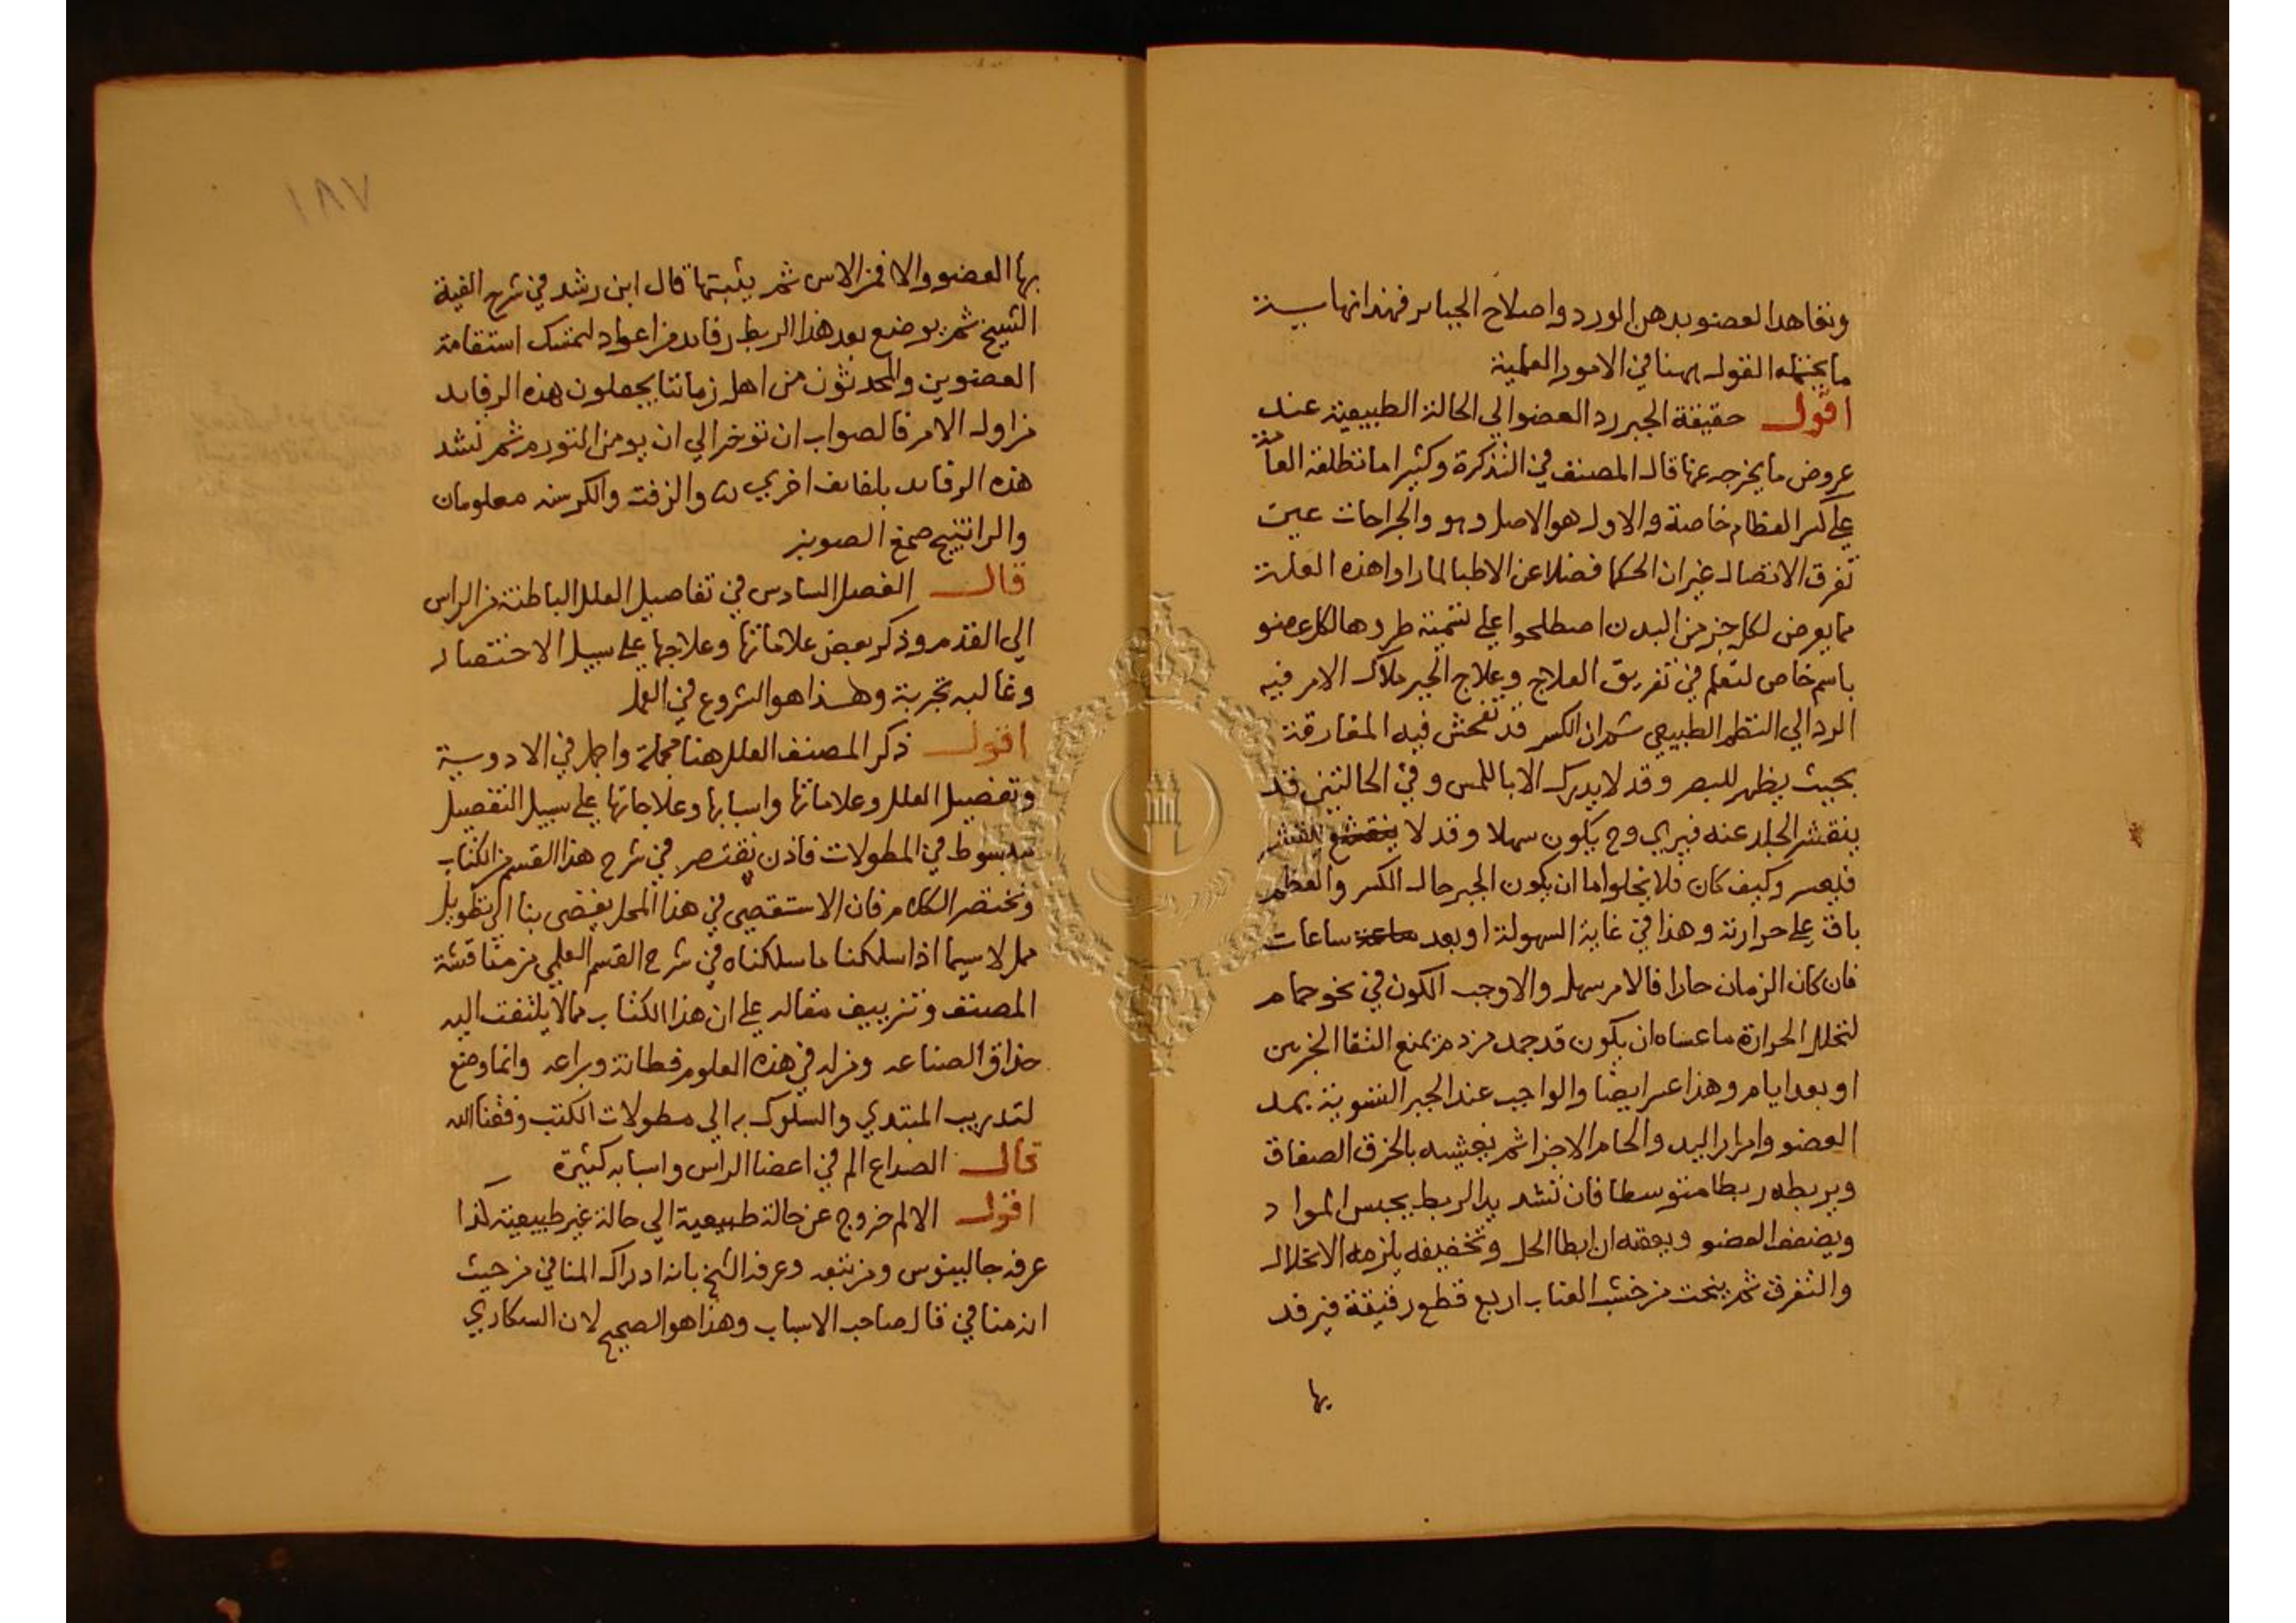 وتعاهد العضو بدهن الورد واصلاح الجباير فهذا نهاية
ما يحتمله القول ههنا في الامور العلمية
اقول حقيقة الجبر رد العضو الي الحالة الطبيعية عند
عروض ما يخرجه عنها قال المصنف في التذكرة وكثيرا ما تطلقه العامة
علي كسر العظام خاصة والاول هو الاصل وهو والجراحات عين
تفرق الاتصال غير ان الحكما فضلا عن الاطبا لما راوا هذه العلة
مما يعرض لكل جز من البدن اصطلحوا علي تسمية طروها لكل عضو
باسم خاص لتعلم في تفريق العلاج وعلاج الجبر ملاك الامر فيه
الرد الي النظم الطبيعي ثم ان الكسر قد تفحش فيه المفارقة
بحيث يظهر للبصر وقد لا يدرك الا باللمس وفي الحالتين قد
ينقشر الجلد عنه فيري وح يكون سهلا وقد لا ينقشر
فيعسر وكيف كان فلا يخلوا اما ان يكون الجبر حال الكسر والعظم
باق علي حرارته وهذا في غاية السهولة او بعد ساعات
فان كان الزمان حارا فالامر سهل والا وجب الكون في نحو حمام
لتحلل الحرارة ما عساه ان يكون قد جمد من دم يمنع التقا الجزين
او بعد ايام وهذا عسر ايضا والواجب عند الجبر التسوية بمد
العضو وامرار اليد والحام الاجزا ثم يغشيه بالخرق الصفاق
ويربطه ربطا متوسطا فان تشديد الربط يحبس المواد
ويضعف العضو ويعقبه ان ابطا الحل وتخفيفه يلزمه الانحلال
والتفرق ثم ينحت من خشب العناب اربع قطع رقيقة فيرفد
بها
١٨٧
بها العضو والا فمن الاس ثم يثبتها قال ابن رشد في شرح الفية
الشيخ ثم يوضع بعد هذا الربط رفايد من اعواد لتمسك استقامة
العضوين والمحدثون من اهل زماننا يجعلون هذه الرفايد
من اول الامر فالصواب ان توخر الي ان يومن التورم ثم تشد
هذه الرفايد بلفايف اخري والزفت والكرسنه معلومان
والراتينج صمغ الصنوبر
قال الفصل السادس في تفاصيل العلل الباطنة من الراس
الي القدم وذكر بعض علاماتها وعلاجها علي سبيل الاختصار
وغالبه تجربة وهذا هو الشروع في العمل
اقول ذكر المصنف العلل هنا مجملة واجمل في الادوية
وتفصيل العلل وعلاماتها واسبابها وعلاجاتها علي سبيل التفصيل
مبسوط في المطولات فاذن نقتصر في شرح هذا القسم من الكتاب
ونختصر الكلام فان الاستقصي في هذا المحل يفضي بنا الي تطويل
ممل لا سيما اذا سلكنا ما سلكناه في شرح القسم العلمي من مناقشة
المصنف وتزييف مقاله علي ان هذا الكتاب مما لا يلتفت اليه
حذاق الصناعه ومن له في هذه العلوم فطانة وبراعه وانما وضع
لتدريب المبتدي والسلوك به الي مطولات الكتب وفقنا الله
قال الصداع الم في اعضا الراس واسبابه كثيرة
اقول الالم خروج عن حالة طبيعية الي حالة غير طبيعية كذا
عرفه جالينوس ومن تبعه وعرفه الشيخ بانه ادراك المنافي من حيث
انه منافي قال صاحب الاسباب وهذا هو الصحيح لان السكاري